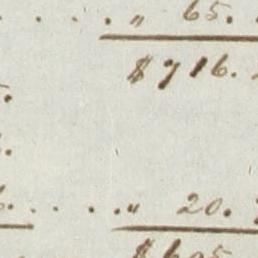 .... „ 65.
$716.
.... „ 20.